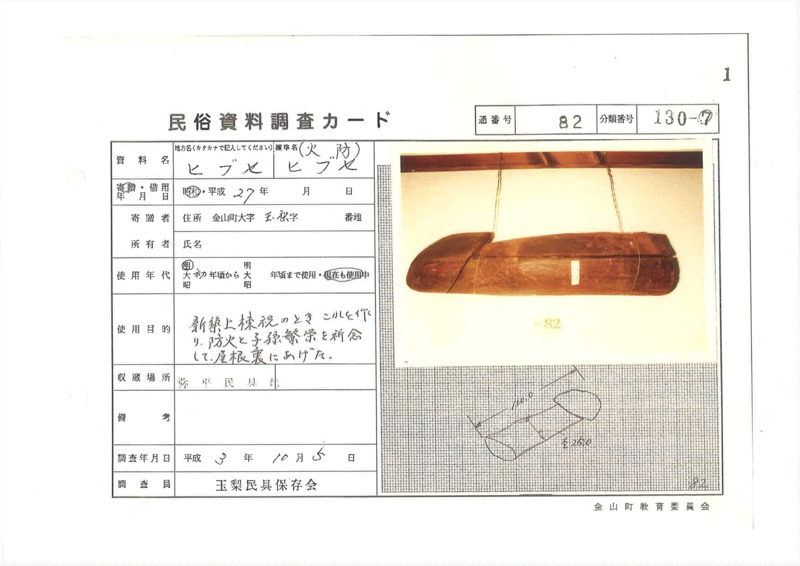 1
民俗資料調査カード
通番号 82 分類番号 130-7
資料名 地方名(カタカナで記入してください) ヒブセ 標準名(火防) ヒブセ
寄贈・借用年月日 昭和・平成 27年 月 日
寄贈者 住所 金山町大字 玉梨字 番地
所有者 氏名
使用年代 明大昭 初年頃から 明大昭 年頃まで使用・現在も使用中
使用目的 新築上棟祝のとき これを作
り、防火と子孫繁栄を祈念
して、屋根裏にあげた。
収蔵場所 弥平民具館
備考
調査年月日 平成 3年 10月 5日
調査員 玉梨民具保存会
82
100.0
径25.0
82
金山町教育委員会